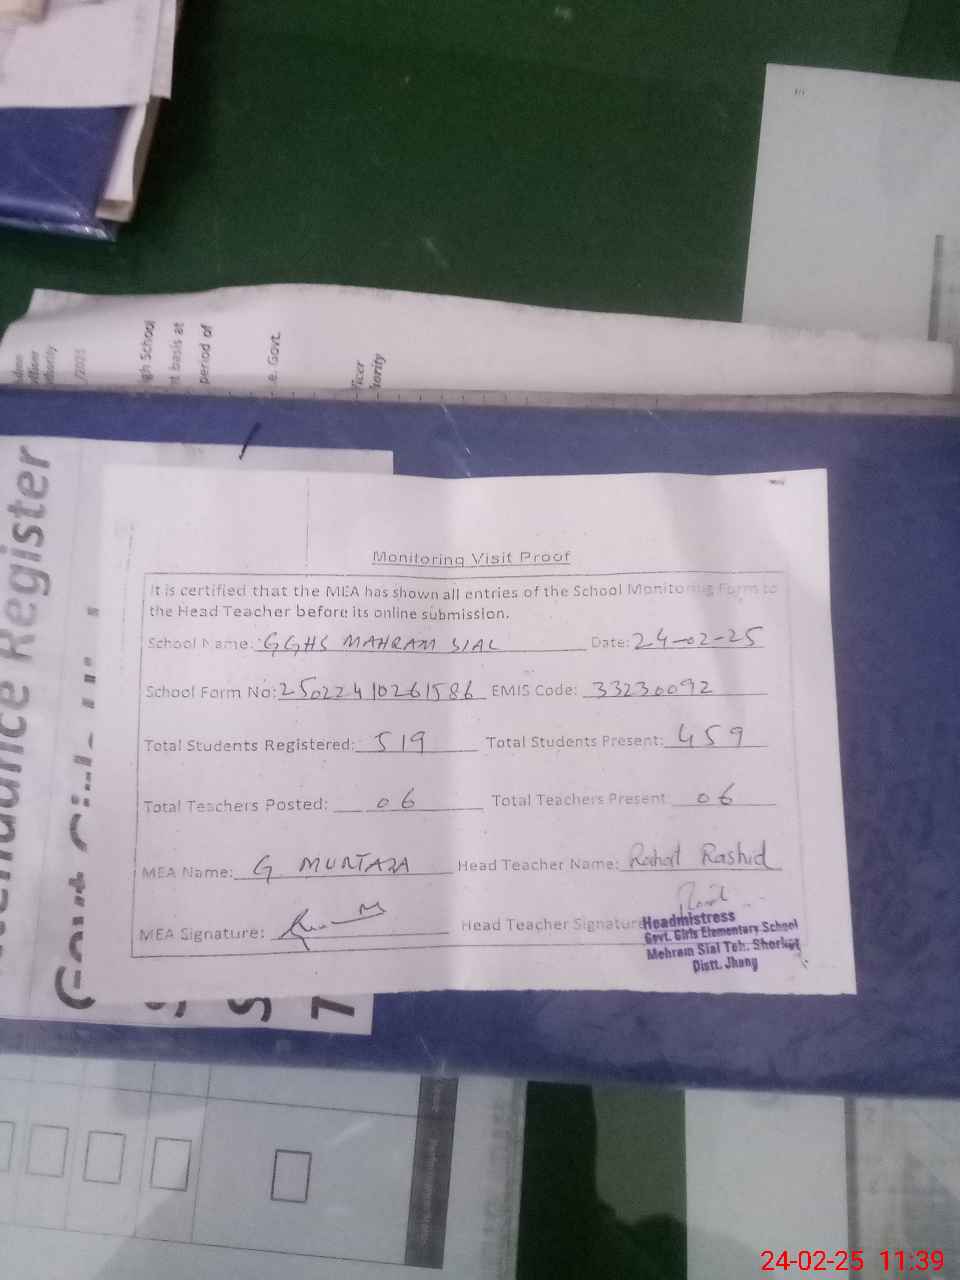 gh School
nt basis at
period of
.e. Govt.
ficer
iority
/2025
Register
Monitoring Visit Proof
It is certified that the MEA has shown all entries of the School Monitoring Form to
the Head Teacher before its online submission.
School Name: GGHS MAHRAM SIAL Date: 24-02-25
School Form No: 25022410261586 EMIS Code: 33230092
Total Students Registered: 519 Total Students Present: 459
Total Teachers Posted: 06 Total Teachers Present: 06
MEA Name: G. MURTAZA Head Teacher Name: Rahat Rashid
MEA Signature: Head Teacher Signature
Headmistress
Govt. Girls Elementary School
Mehram Sial Teh. Shorkot
Distt. Jhang
24-02-25 11:39